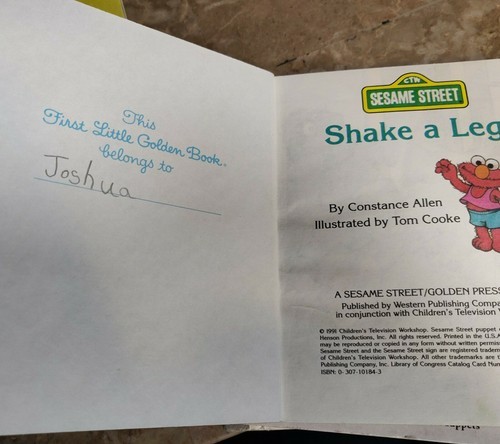 This
First Little Golden Book®
belongs to
Joshua
CTW
SESAME STREET
Shake a Leg
By Constance Allen
Illustrated by Tom Cooke
A SESAME STREET/GOLDEN PRESS
Published by Western Publishing Compa
in conjunction with Children's Television W
© 1991 Children's Television Workshop. Sesame Street puppet
Henson Productions, Inc. All rights reserved. Printed in the U.S.A
may be reproduced or copied in any form without written permis
Sesame Street and the Sesame Street sign are registered tradem
of Children's Television Workshop. All other trademarks are t
Publishing Company, Inc. Library of Congress Catalog Card Num
ISBN: 0-307-10184-3